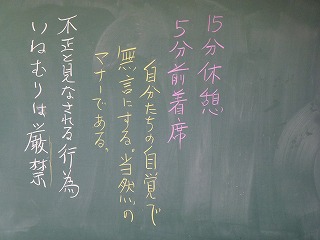 15分休憩
5分前着席
自分たちの自覚で
無言にする。当然の
マナーである。
不正と見なされる行為
いねむりは厳禁